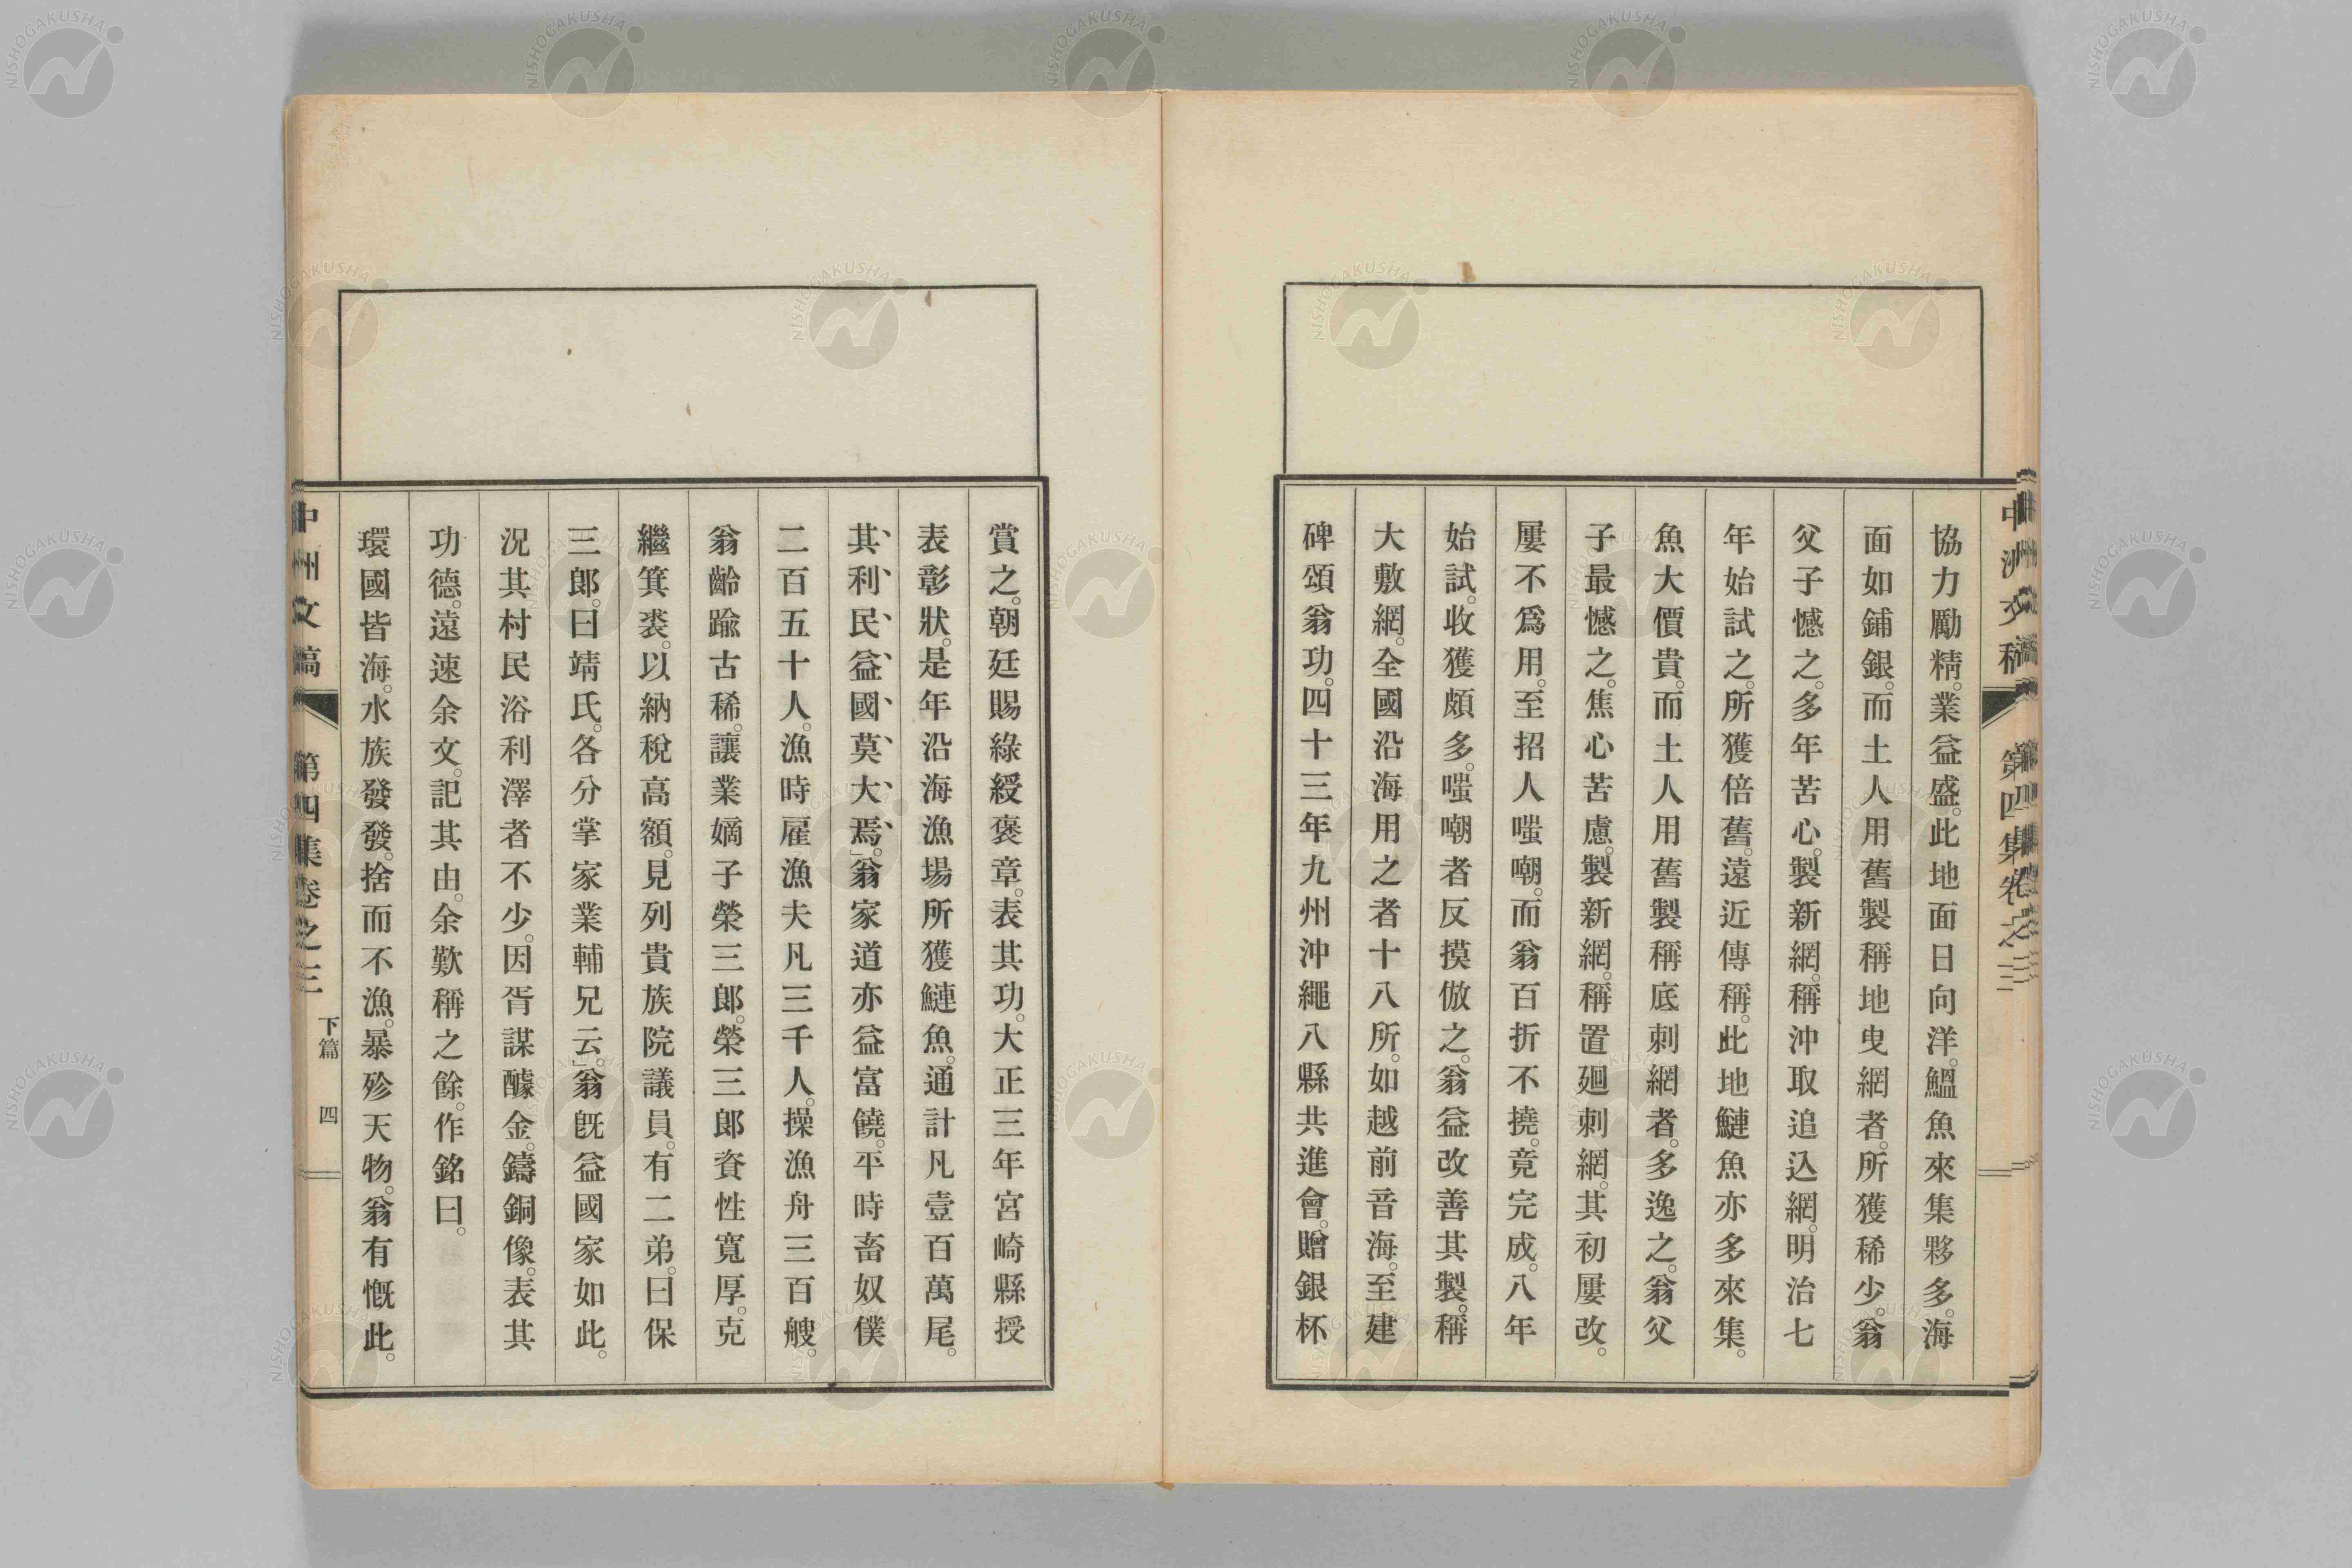 協力勵精。業益盛。此地面日向洋。鰮魚來集夥多。海
面如鋪銀。而土人用舊製稱地曳網者。所獲稀少。翁
父子憾之。多年苦心。製新網。稱沖取追込網。明治七
年始試之。所獲倍舊。遠近傳稱。此地鰱魚亦多來集。
魚大價貴。而土人用舊製稱底刺網者。多逸之。翁父
子最憾之。焦心苦慮。製新網。稱置廻刺網。其初屢改。
屢不爲用。至招人嗤嘲。而翁百折不撓。竟完成。八年
始試。收獲頗多。嗤嘲者反摸倣之。翁益改善其製。稱
大敷網。全國沿海用之者十八所。如越前音海。至建
碑頌翁功。四十三年九州沖繩八縣共進會。贈銀杯
賞之。朝廷賜綠綬褒章。表其功。大正三年宮崎縣授
表彰狀。是年沿海漁場所獲鰱魚。通計凡壹百萬尾。
其、利、民、益、國、莫、大、焉、」翁家道亦益富饒。平時畜奴僕
二百五十人。漁時雇漁夫凡三千人。操漁舟三百艘。
翁齡踰古稀。讓業嫡子榮三郎。榮三郎資性寬厚。克
繼箕裘。以納稅高額。見列貴族院議員。有二弟。曰保
三郎。曰靖氏。各分掌家業輔兄云。」翁既益國家如此。
況其村民浴利澤者不少。因胥謀醵金。鑄銅像。表其
功德。遠速余文。記其由。余歎稱之餘。作銘曰。
環國皆海。水族發發。捨而不漁。暴殄天物。翁有慨此。
中洲文稿 第四集卷之三 下篇 四
NISHOGAKUSHA